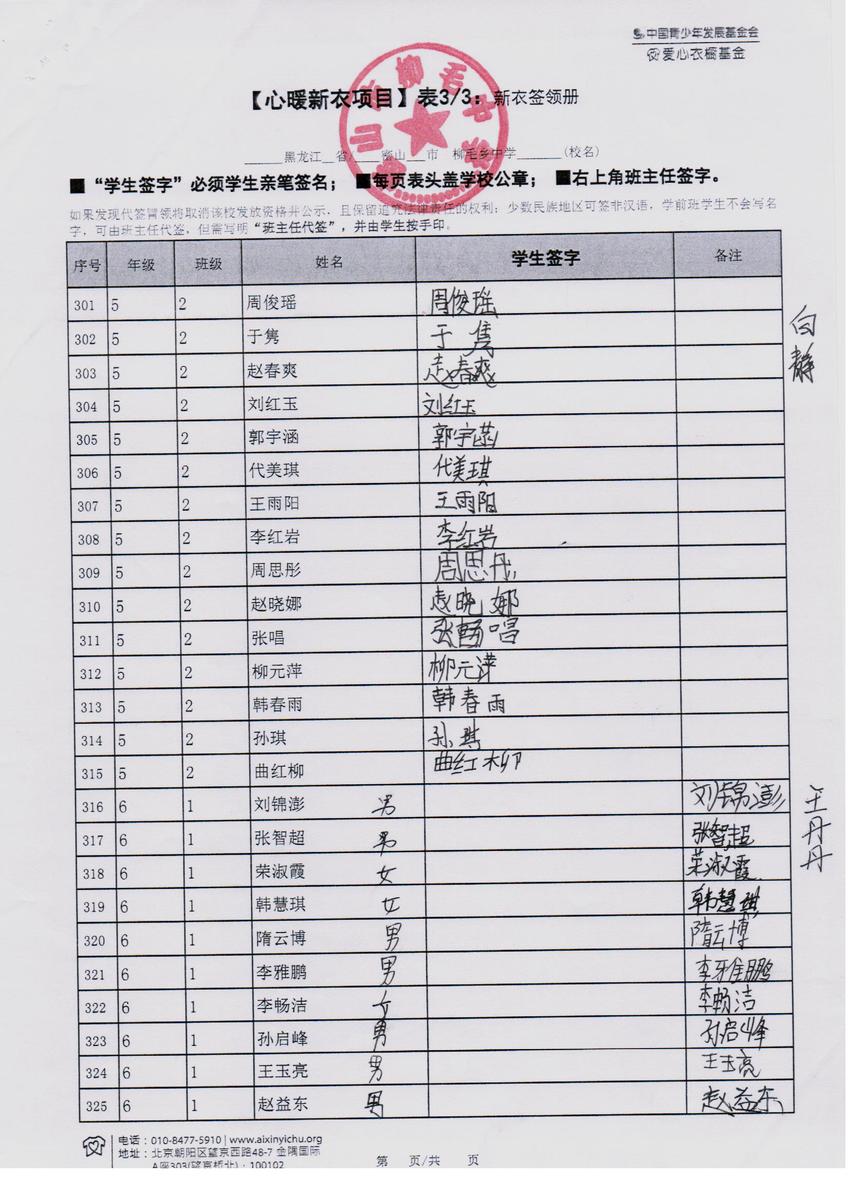 中国青少年发展基金会
爱心衣橱基金
【心暖新衣项目】表3/3：新衣签领册
黑龙江 省/ 密山 市 柳毛乡中学 (校名)
■“学生签字”必须学生亲笔签名； ■每页表头盖学校公章； ■右上角班主任签字。
如果发现代签冒领将取消该校发放资格并公示，且保留追究法律责任的权利；少数民族地区可签非汉语，学前班学生不会写名
字，可由班主任代签，但需写明“班主任代签”，并由学生按手印。
序号 年级 班级 姓名 学生签字 备注
301 5 2 周俊瑶 周俊瑶
302 5 2 于隽 于隽
白静
303 5 2 赵春爽 赵春爽
304 5 2 刘红玉 刘红玉
305 5 2 郭宇涵 郭宇涵
306 5 2 代美琪 代美琪
307 5 2 王雨阳 王雨阳
308 5 2 李红岩 李红岩
309 5 2 周思彤 周思丹
310 5 2 赵晓娜 赵晓娜
311 5 2 张唱 张畅唱
312 5 2 柳元萍 柳元萍
313 5 2 韩春雨 韩春雨
314 5 2 孙琪 孙琪
315 5 2 曲红柳 曲红柳
316 6 1 刘锦澎 男 刘锦澎
王丹丹
317 6 1 张智超 男 张智超
318 6 1 荣淑霞 女 荣淑霞
319 6 1 韩慧琪 女 韩慧琪
320 6 1 隋云博 男 隋云博
321 6 1 李雅鹏 男 李雅鹏
322 6 1 李畅洁 女 李畅洁
323 6 1 孙启峰 男 孙启峰
324 6 1 王玉亮 男 王玉亮
325 6 1 赵益东 男 赵益东
电话：010-8477-5910 | www.aixinyichu.org
地址：北京朝阳区望京西路48-7 金隅国际
A座303(望京桥北)·100102
第 页/共 页